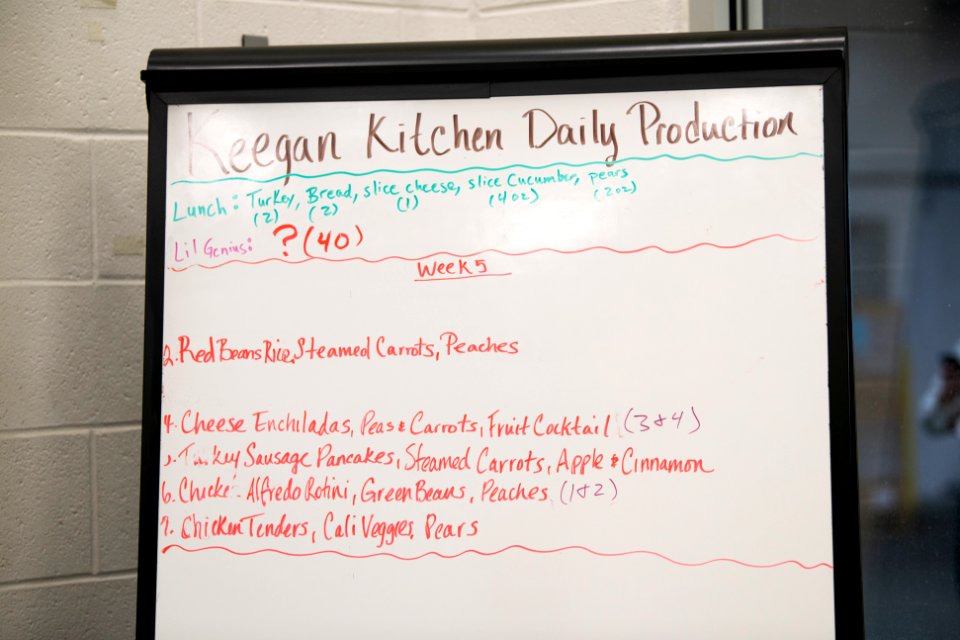 Keegan Kitchen Daily Production
Lunch: Turkey, Bread, slice cheese, slice Cucumber, pears
(2) (2) (1) (4oz) (2oz)
Lil Genius: ? (40)
Week 5
2. Red Beans Rice, Steamed Carrots, Peaches
4. Cheese Enchiladas, Peas & Carrots, Fruit Cocktail (3&4)
Turkey Sausage Pancakes, Steamed Carrots, Apple & Cinnamon
6. Chicke Alfredo Rotini, Green Beans, Peaches (1&2)
7. Chicken Tenders, Cali Veggies, Pears